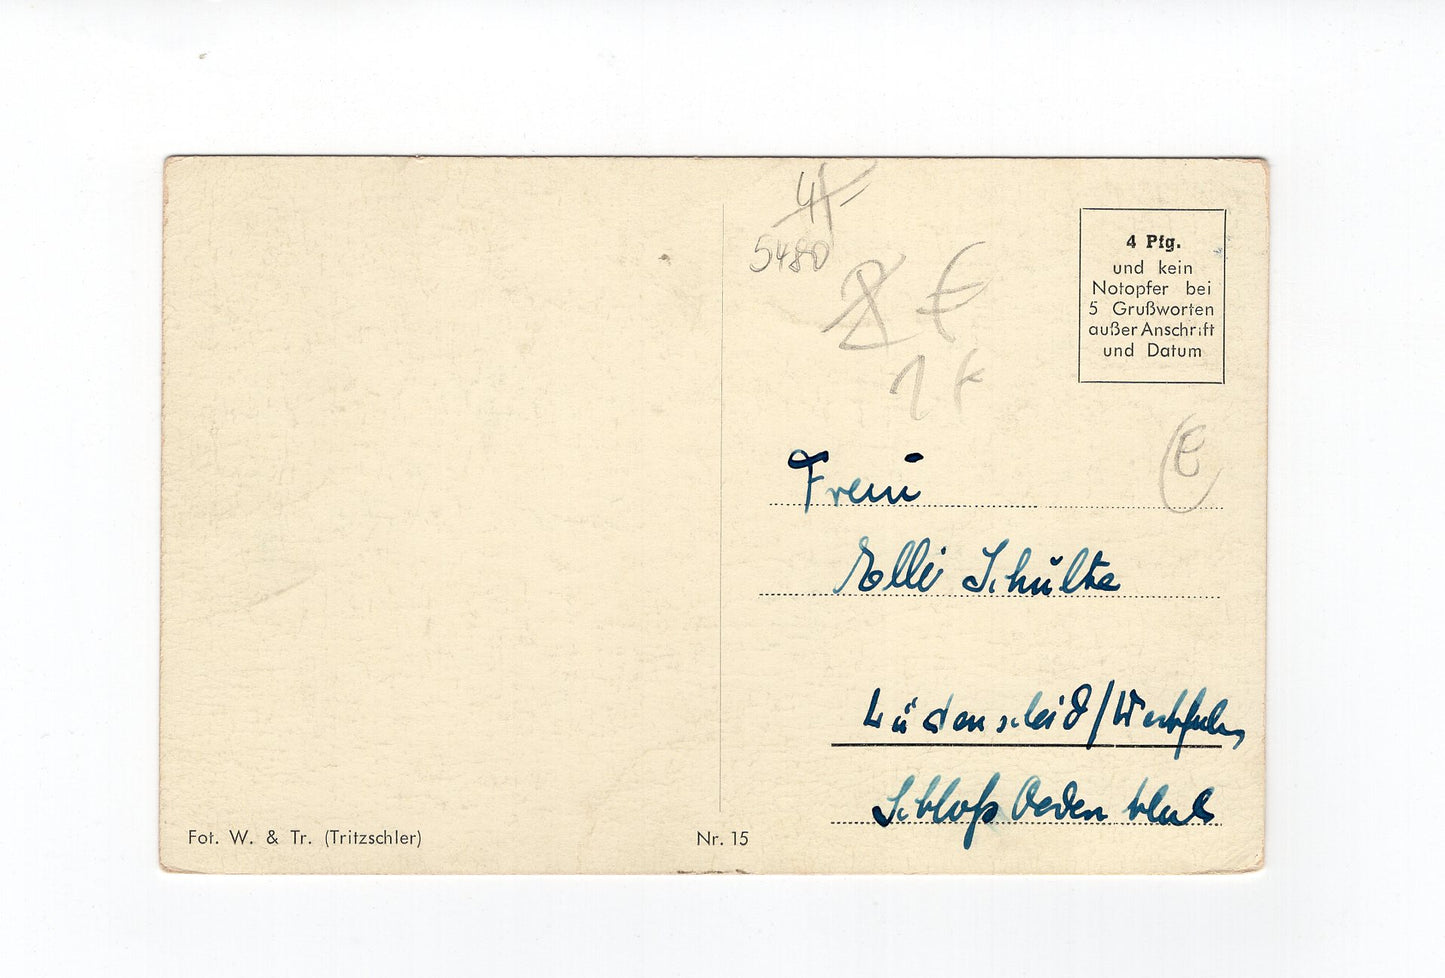 4
5480
2 €
1 €
€
4 Pfg.
und kein
Notopfer bei
5 Grußworten
außer Anschrift
und Datum
Frau
Elli Schulte
Lüdenscheid/Westfalen
Schloß
Fot. W. & Tr. (Tritzschler)
Nr. 15